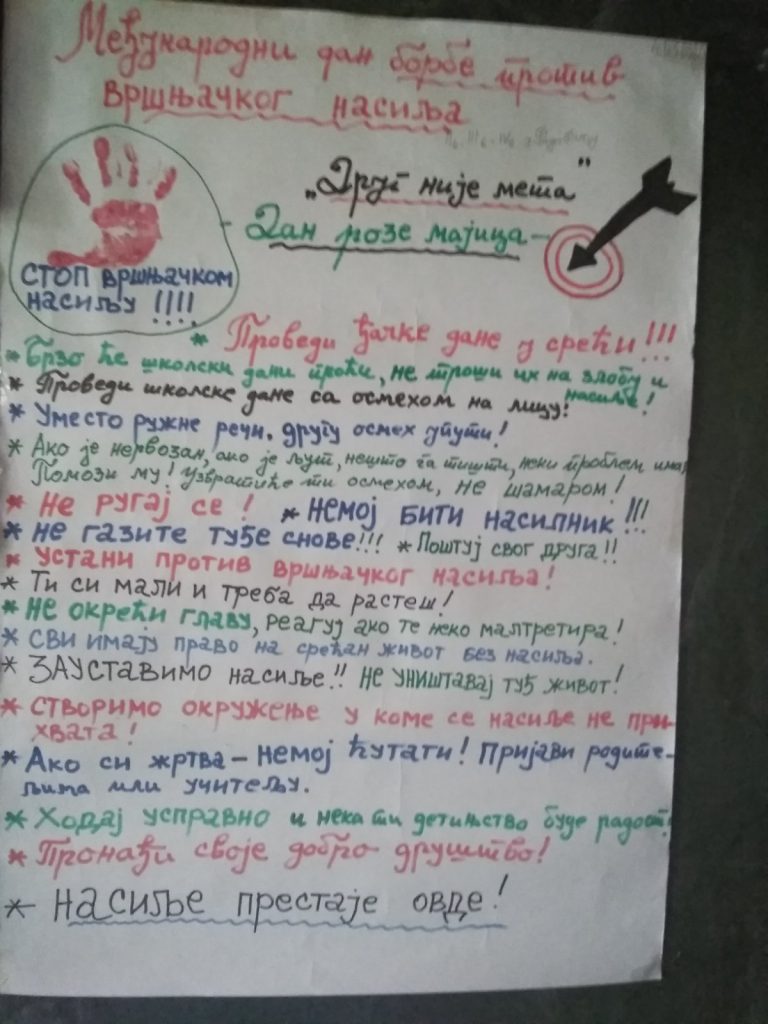 Међународни дан борбе против
вршњачког насиља
„Друг није мета"
- Дан розе мајица -
СТОП ВРШЊАЧКОМ
НАСИЉУ !!!!
* Проведи ђачке дане у срећи!!!
* Брзо ће школски дани проћи, не троши их на злобу и
насиље!
* Проведи школске дане са осмехом на лицу!
* Уместо ружне речи. другу осмех упути!
* Ако је нервозан, ако је љут, нешто га тишти, неки проблем има,
Помози му! Узвратиће ти осмехом, не шамаром!
* Не ругај се! * Немој бити насилник!!!
* Не газите туђе снове!!! * Поштуј свог друга!!
* Устани против вршњачког насиља!
* Ти си мали и треба да растеш!
* Не окрећи главу, реагуј ако те неко малтретира!
* Сви имају право на срећан живот без насиља.
* ЗАУСТАВИМО насиље!! Не уништавај туђ живот!
* Створимо окружење у коме се насиље не при-
хвата!
* Ако си жртва - немој ћутати! Пријави родите-
љима или учитељу.
* Ходај усправно и нека ти детињство буде радост!
* Пронађи своје добро друштво!
* Насиље престаје овде!